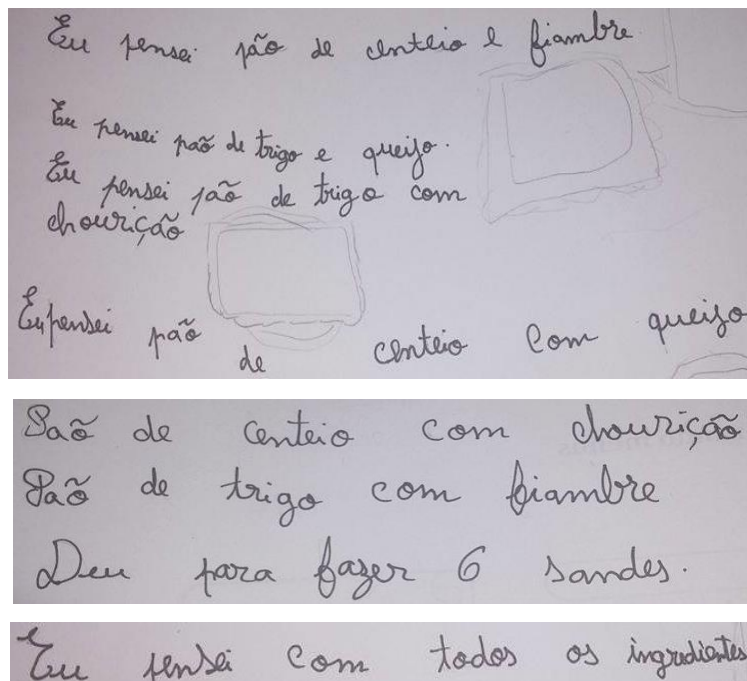 Eu pensei pão de centeio e fiambre.
Eu pensei paõ de trigo e queijo.
Eu pensei pão de trigo com
chouriçaõ
Eu pensei paõ de centeio com queijo
Paõ de centeio com chouriçaõ
Paõ de trigo com fiambre
Deu para fazer 6 sandes.
Eu pensei com todos os ingredientes